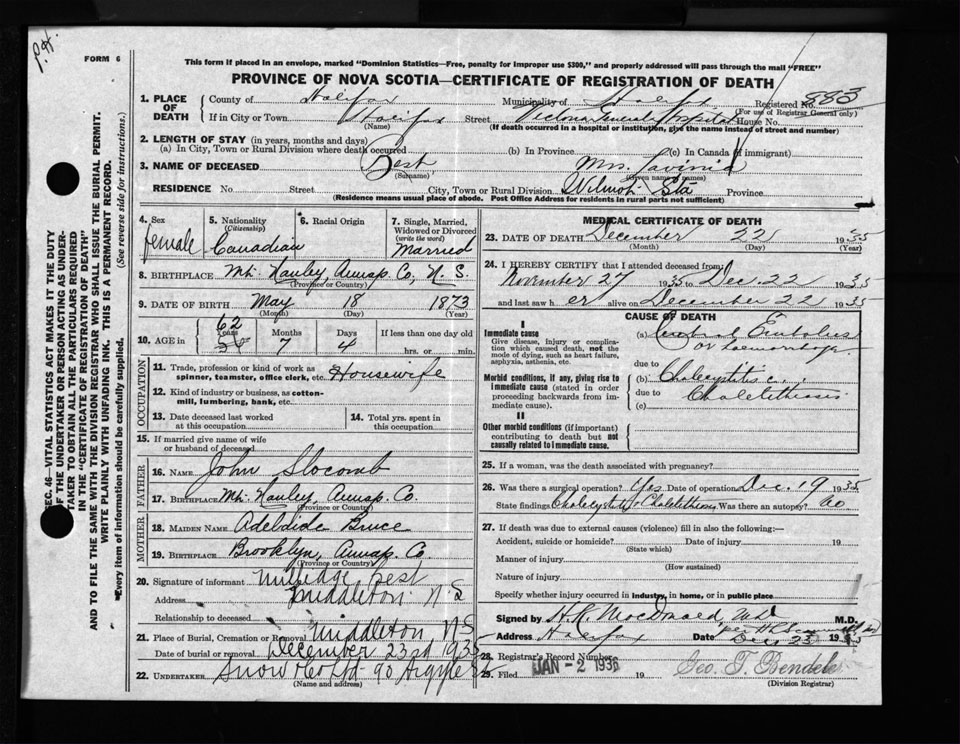 P.H.
FORM 6
This form if placed in an envelope, marked "Dominion Statistics—Free, penalty for improper use $300," and properly addressed will pass through the mail "FREE"
PROVINCE OF NOVA SCOTIA—CERTIFICATE OF REGISTRATION OF DEATH
1. PLACE OF DEATH County of Halifax Municipality of Halifax Registered No. 883
(For use of Registrar General only)
If in City or Town Halifax Street Victoria General Hospital House No.
(Name) (If death occurred in a hospital or institution, give the name instead of street and number)
2. LENGTH OF STAY (in years, months and days)
(a) In City, Town or Rural Division where death occurred (b) In Province (c) In Canada (if immigrant)
3. NAME OF DECEASED Best Mrs. Lavinia
(Surname) (Given name or names)
RESIDENCE No Street City, Town or Rural Division Wilmot Sta Province
(Residence means usual place of abode. Post Office Address for residents in rural parts not sufficient)
4. Sex female
5. Nationality (Citizenship) Canadian
6. Racial Origin
7. Single, Married, Widowed or Divorced (write the word) Married
8. BIRTHPLACE Mt. Hanley, Annap. Co, N. S.
(Province or Country)
9. DATE OF BIRTH May 18 1873
(Month) (Day) (Year)
10. AGE in 62 Years 7 Months 4 Days If less than one day old
hrs. or min.
OCCUPATION
11. Trade, profession or kind of work as spinner, teamster, office clerk, etc. Housewife
12. Kind of industry or business, as cotton-mill, lumbering, bank, etc.
13. Date deceased last worked at this occupation
14. Total yrs. spent in this occupation
15. If married give name of wife or husband of deceased
FATHER
16. NAME John Slocomb
17. BIRTHPLACE Mt. Hanley, Annap. Co.
(Province or Country)
MOTHER
18. MAIDEN NAME Adelaide Bruce
19. BIRTHPLACE Brooklyn, Annap. Co.
(Province or Country)
20. Signature of informant Milledge Best
Address Middleton N.S
Relationship to deceased
21. Place of Burial, Cremation or Removal Middleton, N S
Date of burial or removal December 23rd 1935
22. UNDERTAKER Snow & Co Ltd 90 Argyle St
(Name and address)
MEDICAL CERTIFICATE OF DEATH
23. DATE OF DEATH December 22 1935
(Month) (Day) (Year)
24. I HEREBY CERTIFY that I attended deceased from
November 27 1935 to Dec. 22 1935
and last saw her alive on December 22 1935
CAUSE OF DEATH
I
Immediate cause
Give disease, injury or complication which caused death, not the mode of dying, such as heart failure, asphyxia, asthenia, etc.
(a) Cerebral Embolus
or haemorrhage
due to
Morbid conditions, if any, giving rise to immediate cause (stated in order proceeding backwards from immediate cause).
(b) Cholecystitis c
due to Cholelithiasis
(c)
II
Other morbid conditions (if important) contributing to death but not causally related to immediate cause.
25. If a woman, was the death associated with pregnancy?
26. Was there a surgical operation? Yes Date of operation Dec. 19 1935
State findings Cholecystitis Cholelithiasis Was there an autopsy? No
27. If death was due to external causes (violence) fill in also the following:—
Accident, suicide or homicide? Date of injury 19
(State which)
Manner of injury
(How sustained)
Nature of injury
Specify whether injury occurred in industry, in home, or in public place
Signed by H.K. MacDonald, M.D. M.D.
Address Halifax Date Dec 23 1935
28. Registrar's Record Number
29. Filed JAN -2 1936 19 Geo. T. Bendele
(Division Registrar)
SEC. 46—VITAL STATISTICS ACT MAKES IT THE DUTY
OF THE UNDERTAKER OR PERSON ACTING AS UNDER-
TAKER TO OBTAIN ALL THE PARTICULARS REQUIRED
IN THE "CERTIFICATE OF REGISTRATION OF DEATH"
AND TO FILE THE SAME WITH THE DIVISION REGISTRAR WHO SHALL ISSUE THE BURIAL PERMIT.
WRITE PLAINLY WITH UNFADING INK. THIS IS A PERMANENT RECORD.
Every item of information should be carefully supplied. (See reverse side for instructions.)